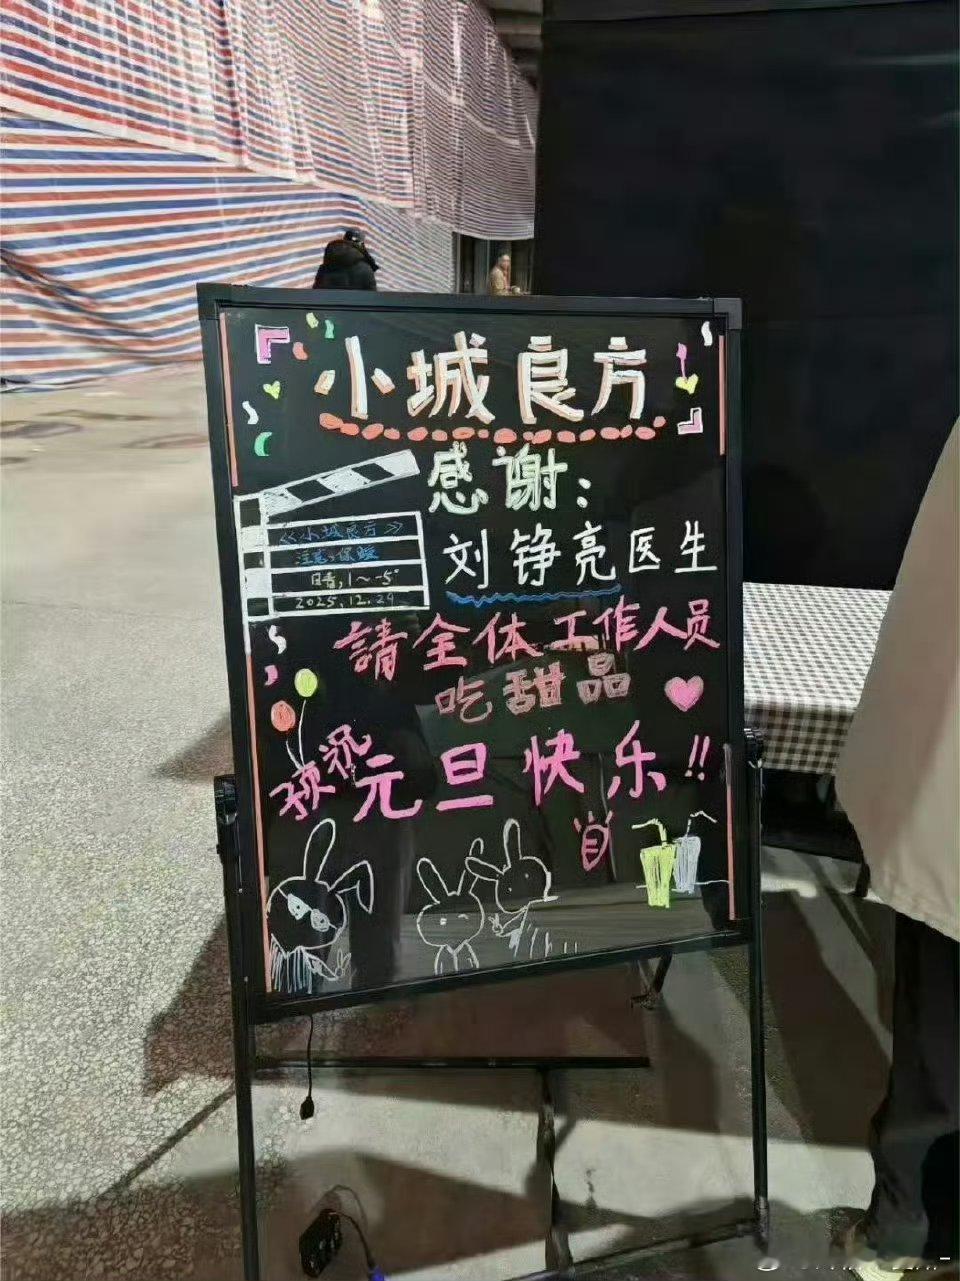 小城良方
感谢：
《小城良方》
注意：保暖
晴，1～-5°
2025.12.29
刘铮亮医生
請全体工作人员
吃甜品
预祝元旦快乐!!